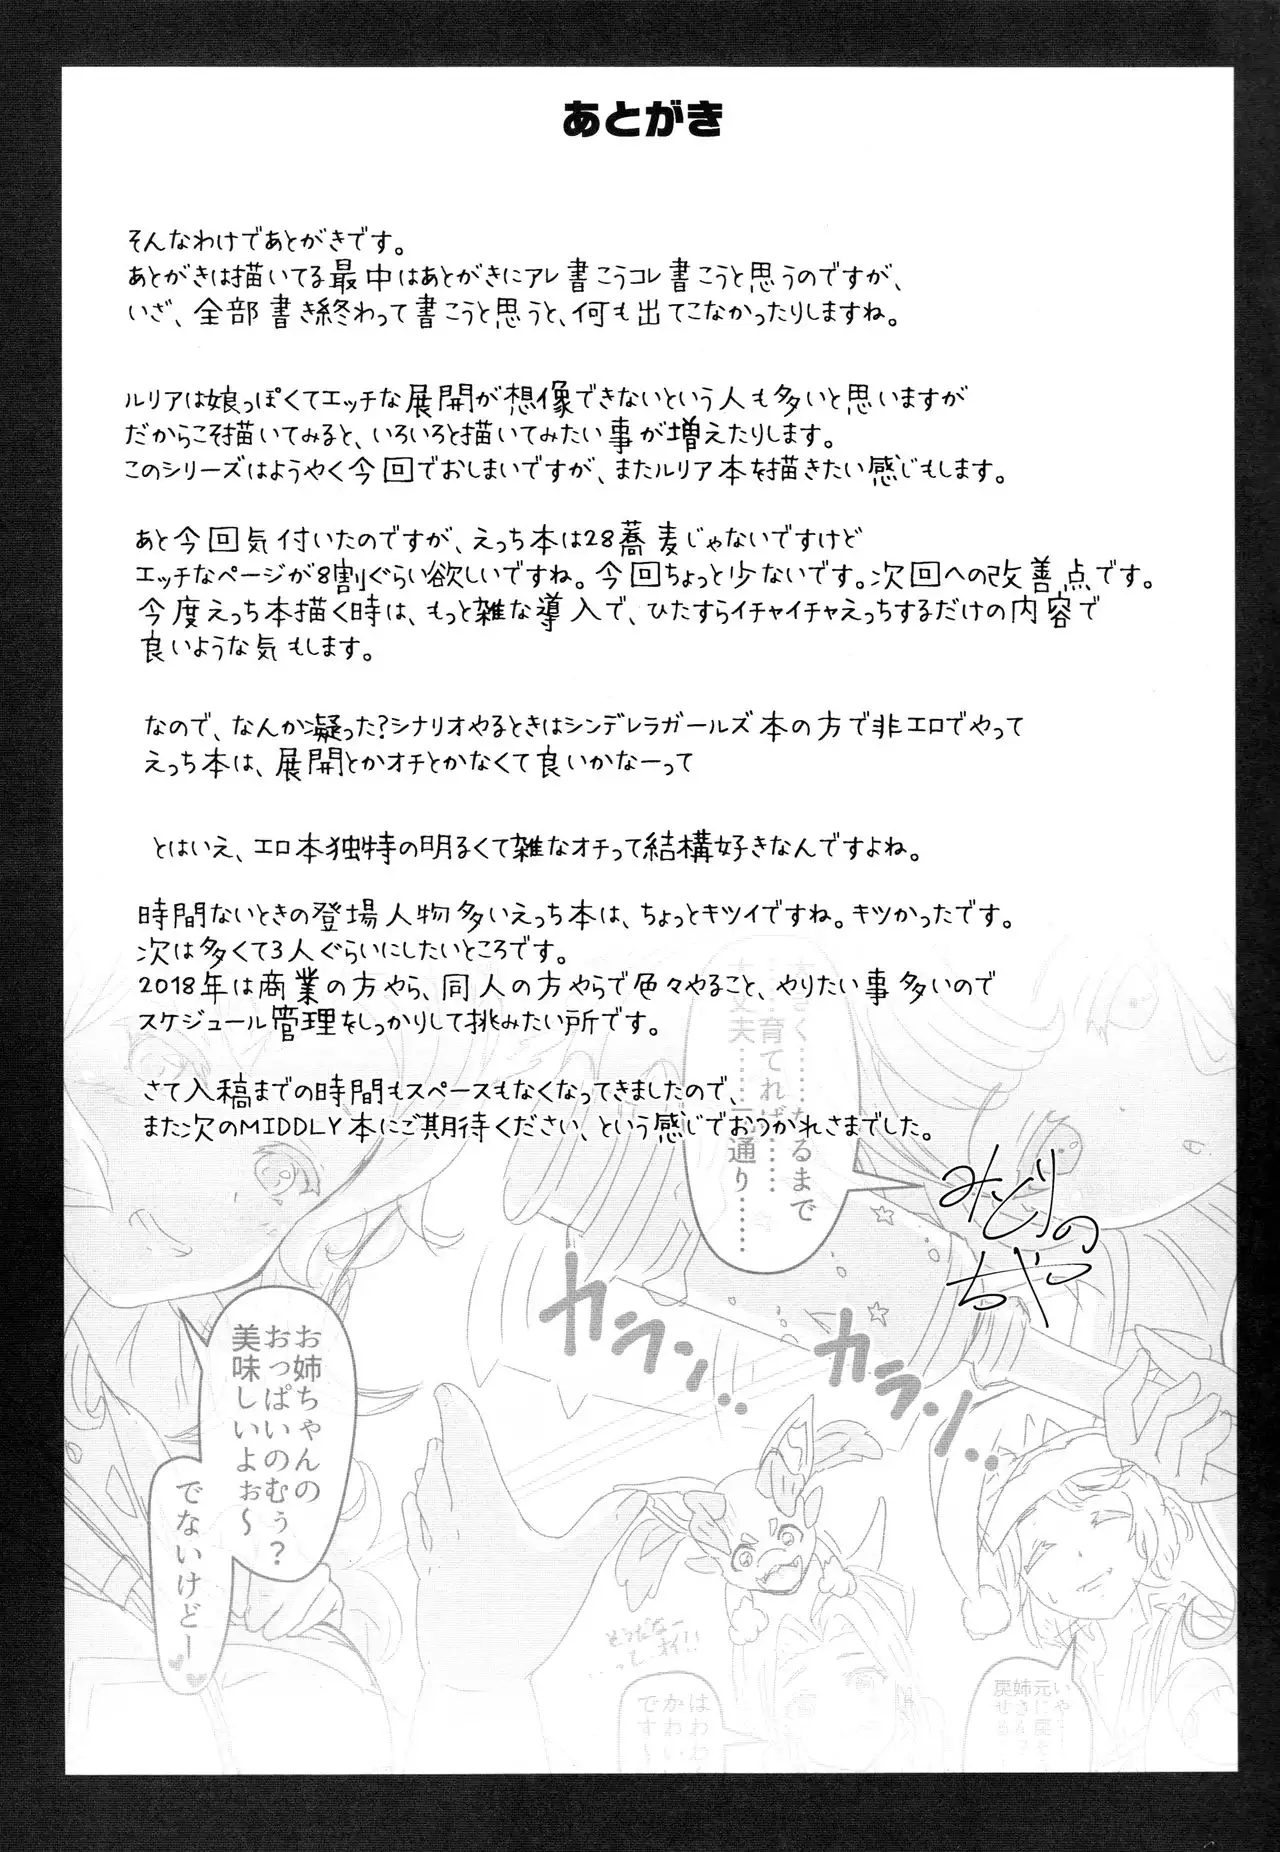 あとがき
そんなわけであとがきです。
あとがきは描いてる最中はあとがきにアレ書こうコレ書こうと思うのですが、
いざ、全部書き終わって書こうと思うと、何も出てこなかったりしますね。
ルリアは娘っぽくてエッチな展開が想像できないという人も多いと思いますが
だからこそ描いてみると、いろいろと描いてみたい事が増えたりします。
このシリーズはようやく今回でおしまいですが、またルリア本を描きたい感じもします。
あと今回気付いたのですが、えっち本は28蕎麦じゃないですけど
エッチなページが8割ぐらい欲しいですね。今回ちょっと少ないです。次回への改善点です。
今度えっち本描く時は、もっと雑な導入で、ひたすらイチャイチャえっちするだけの内容で
良いような気もします。
なので、なんか凝った?シナリオやるときはシンデレラガールズ本の方で非エロでやって
えっち本は、展開とかオチとかなくて良いかなーって
とはいえ、エロ本独特の明るくて雑なオチって結構好きなんですよね。
時間ないときの登場人物多いえっち本は、ちょっとキツイですね。キツかったです。
次は多くて3人ぐらいにしたいところです。
2018年は商業の方やら、同人の方やらで色々やること、やりたい事多いので
スケジュール管理をしっかりして挑みたい所です。
さて入稿までの時間もスペースもなくなってきましたので、
また次のMIDDLY本にご期待ください、という感じでおつかれさまでした。
みどりの
ちや
きく……なるまで
……育てれば……
大丈夫……元通り……
カラン‥
カラン‥
お姉ちゃんの
おっぱいのむぅ?
美味しいよぉ〜
でないけどー
はわわ
かわいい
です〜